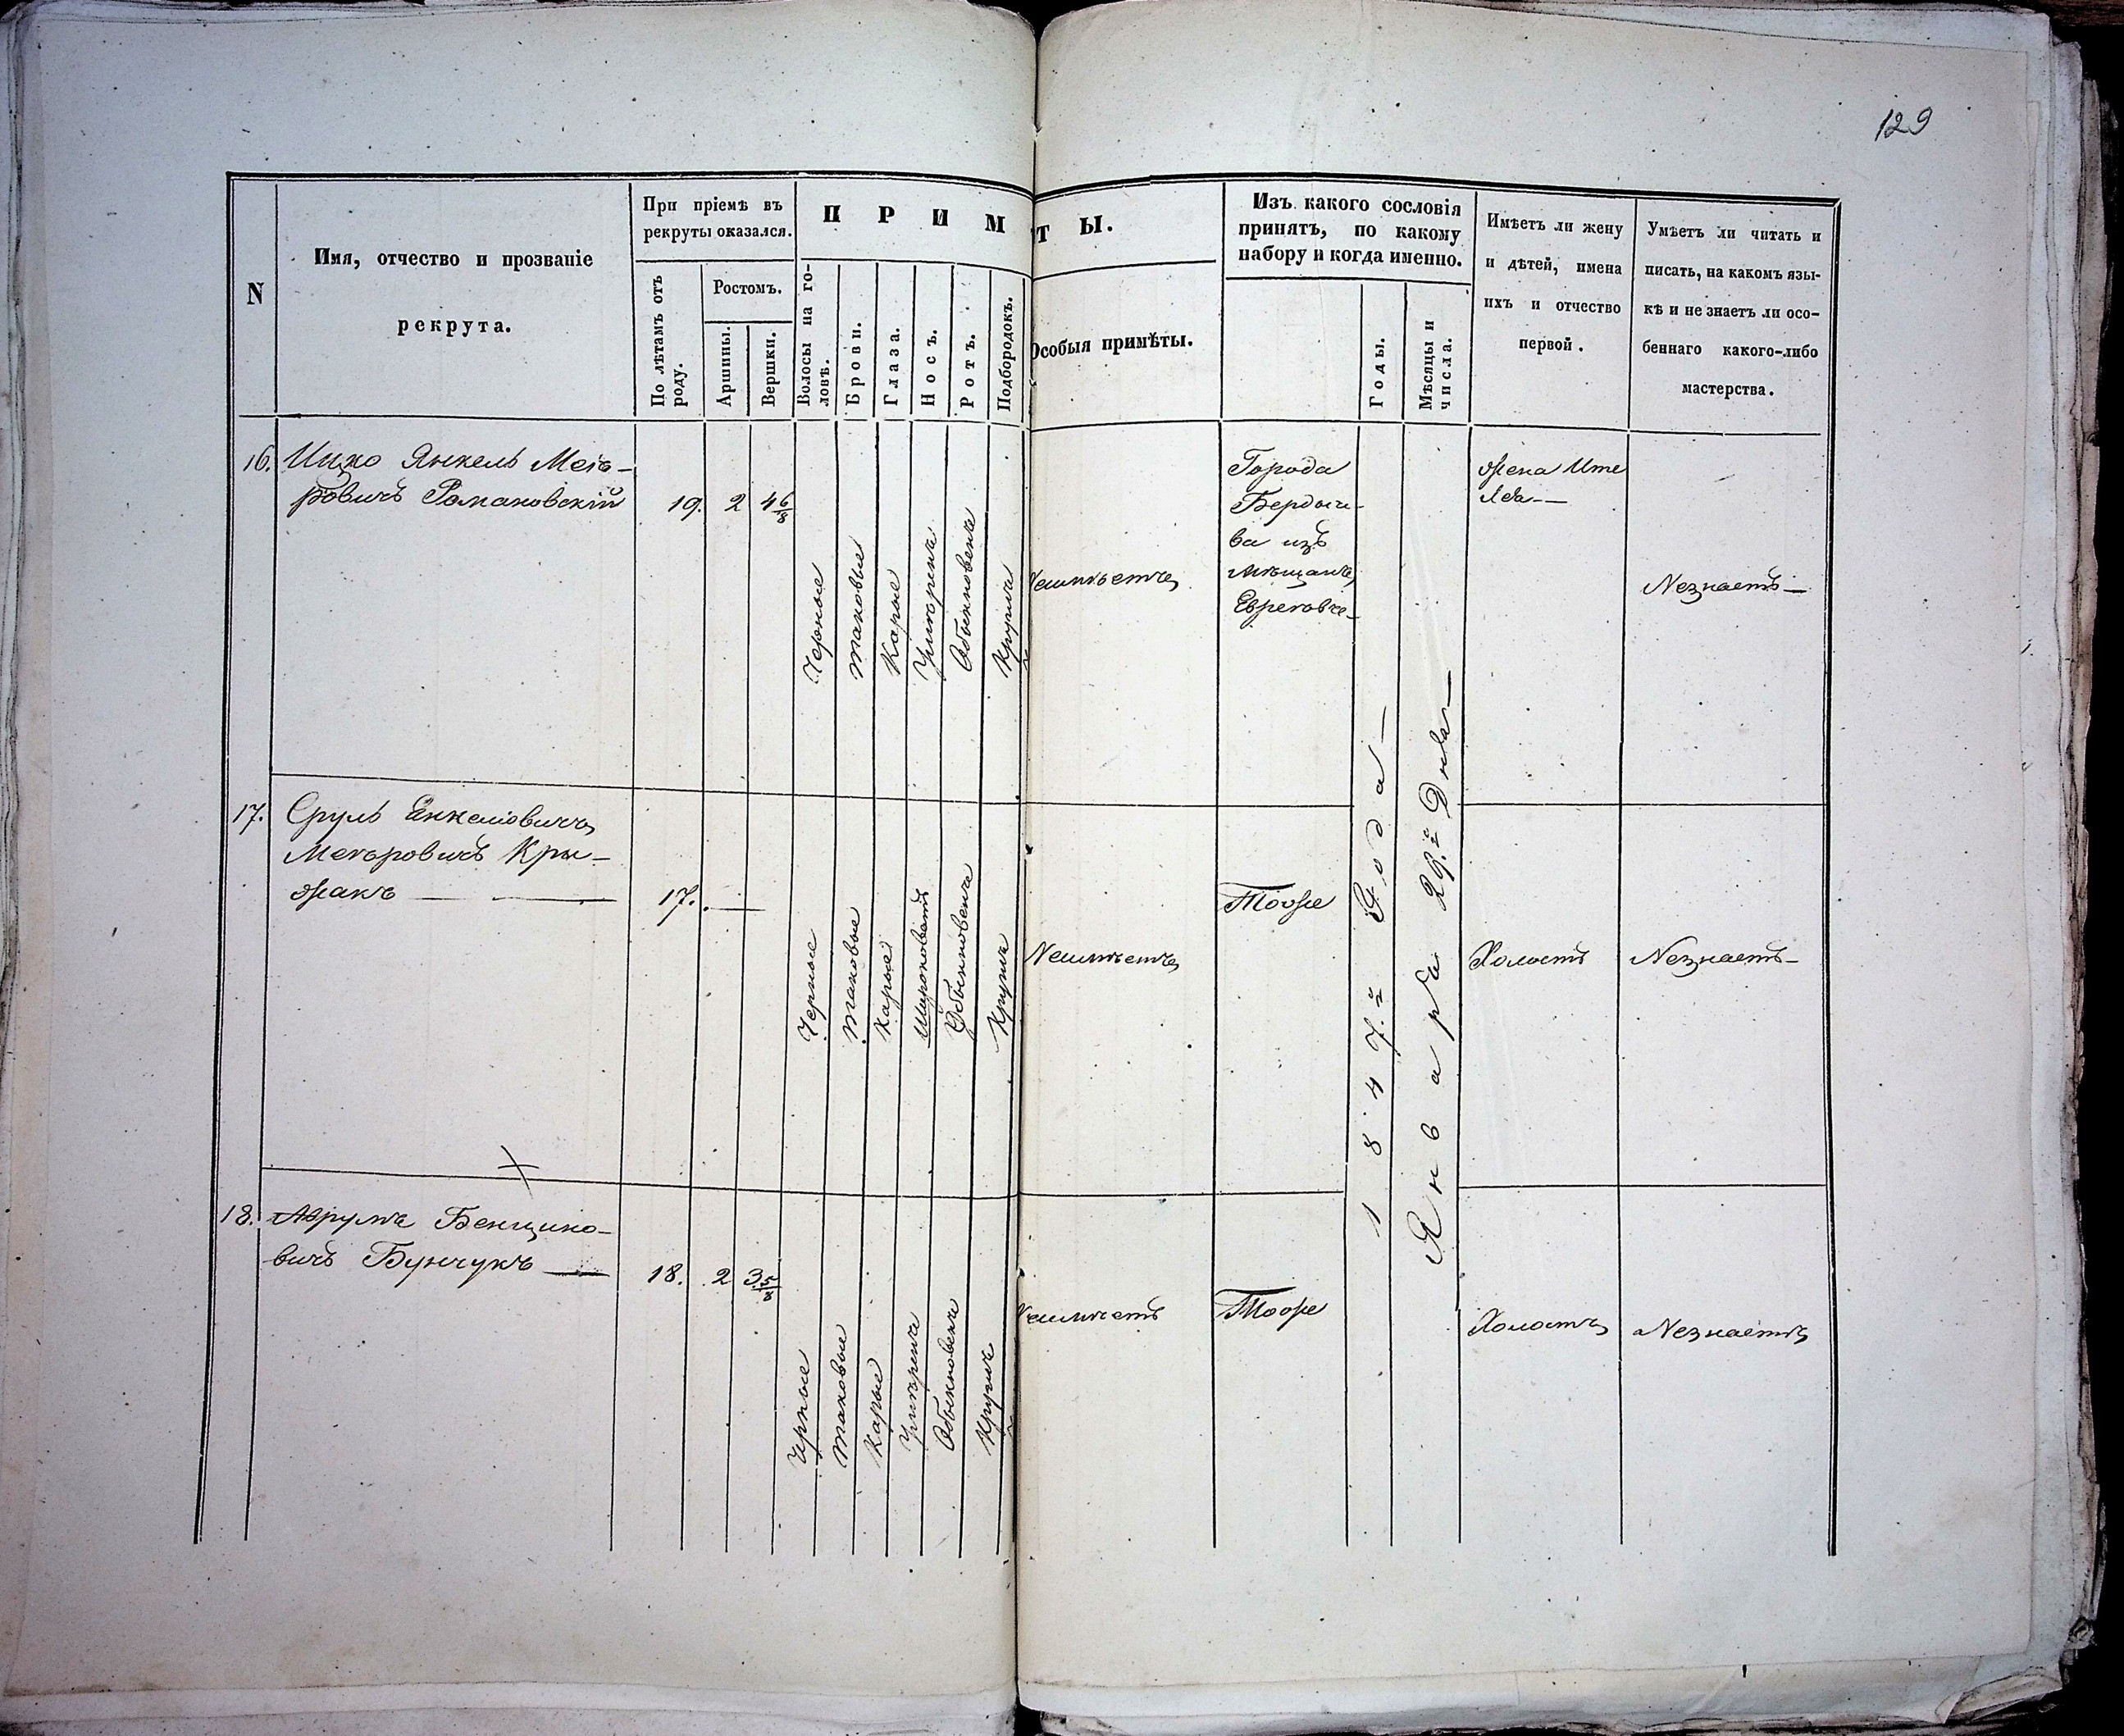 129
N
Имя, отчество и прозваніе
рекрута.
При пріемѣ въ
рекруты оказался.
По лѣтамъ отъ
роду.
Ростомъ.
Аршины.
Вершки.
ПРИМ
ТЫ.
Волосы на го-
ловѣ.
Брови.
Глаза.
Носъ.
Ротъ.
Подбородокъ.
Особыя примѣты.
Изъ какого сословія
принятъ, по какому
набору и когда именно.
Годы.
Мѣсяцы и
числа.
Имѣетъ ли жену
и дѣтей, имена
ихъ и отчество
первой.
Умѣетъ ли читать и
писать, на какомъ язы-
кѣ и не знаетъ ли осо-
беннаго какого-либо
мастерства.
16.
Ицко Янкель Меіо-
ровичъ Романовскій
19.
2
4 6/8
Черные
таковые
Карые
Умѣренъ
Обыкновенъ
Круглъ
Неимѣетъ
Города
Бердиче-
ва изъ
мѣщанъ
Евреевъ
жена Ите
Лея
Незнаетъ
17.
Сруль Енкеліовичъ
Меюровичъ Кры-
жакъ
17.
Черные
таковые
Карые
Широковатъ
Обыкновенъ
Круглъ
Неимѣетъ
Тоже
1847.й Года
Января 29.е Дня
Холостъ
Незнаетъ
18.
Аврумъ Бенціно-
вичъ Бунчукъ
18.
2
3 5/8
Чрные
таковые
Карые
Умѣренъ
Обыкновенъ
Круглъ
Неимѣетъ
Тоже
Холостъ
Незнаетъ